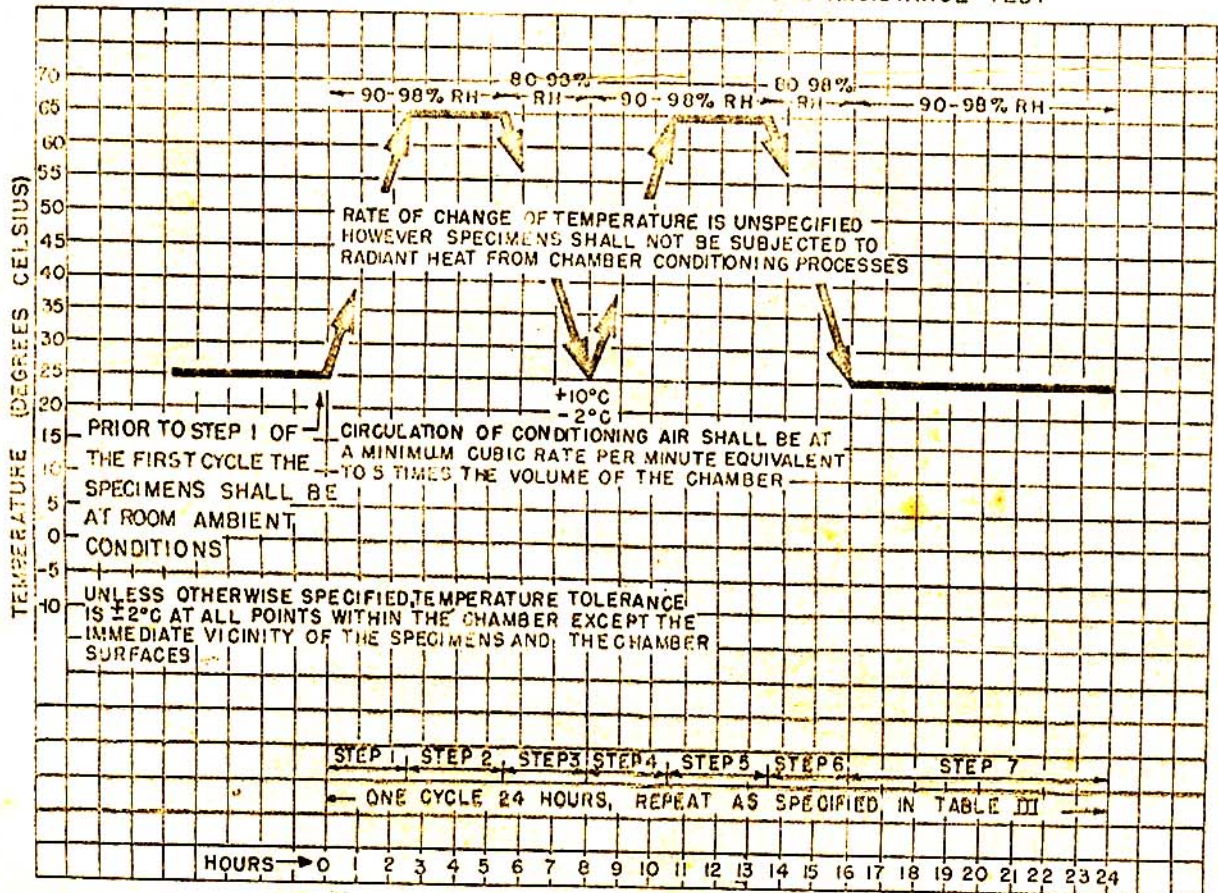 RESISTANCE TEST
70
65
60
55
50
45
40
35
30
25
20
15
10
5
0
-5
-10
TEMPERATURE (DEGREES CELSIUS)
90-98% RH
80-98%
RH
90-98% RH
80-98%
RH
90-98% RH
RATE OF CHANGE OF TEMPERATURE IS UNSPECIFIED
HOWEVER SPECIMENS SHALL NOT BE SUBJECTED TO
RADIANT HEAT FROM CHAMBER CONDITIONING PROCESSES
+10°C
-2°C
PRIOR TO STEP 1 OF
THE FIRST CYCLE THE
SPECIMENS SHALL BE
AT ROOM AMBIENT
CONDITIONS
CIRCULATION OF CONDITIONING AIR SHALL BE AT
A MINIMUM CUBIC RATE PER MINUTE EQUIVALENT
TO 5 TIMES THE VOLUME OF THE CHAMBER
UNLESS OTHERWISE SPECIFIED, TEMPERATURE TOLERANCE
IS ±2°C AT ALL POINTS WITHIN THE CHAMBER EXCEPT THE
IMMEDIATE VICINITY OF THE SPECIMENS AND THE CHAMBER
SURFACES
STEP 1 STEP 2 STEP 3 STEP 4 STEP 5 STEP 6 STEP 7
ONE CYCLE 24 HOURS, REPEAT AS SPECIFIED IN TABLE III
HOURS 0 1 2 3 4 5 6 7 8 9 10 11 12 13 14 15 16 17 18 19 20 21 22 23 24